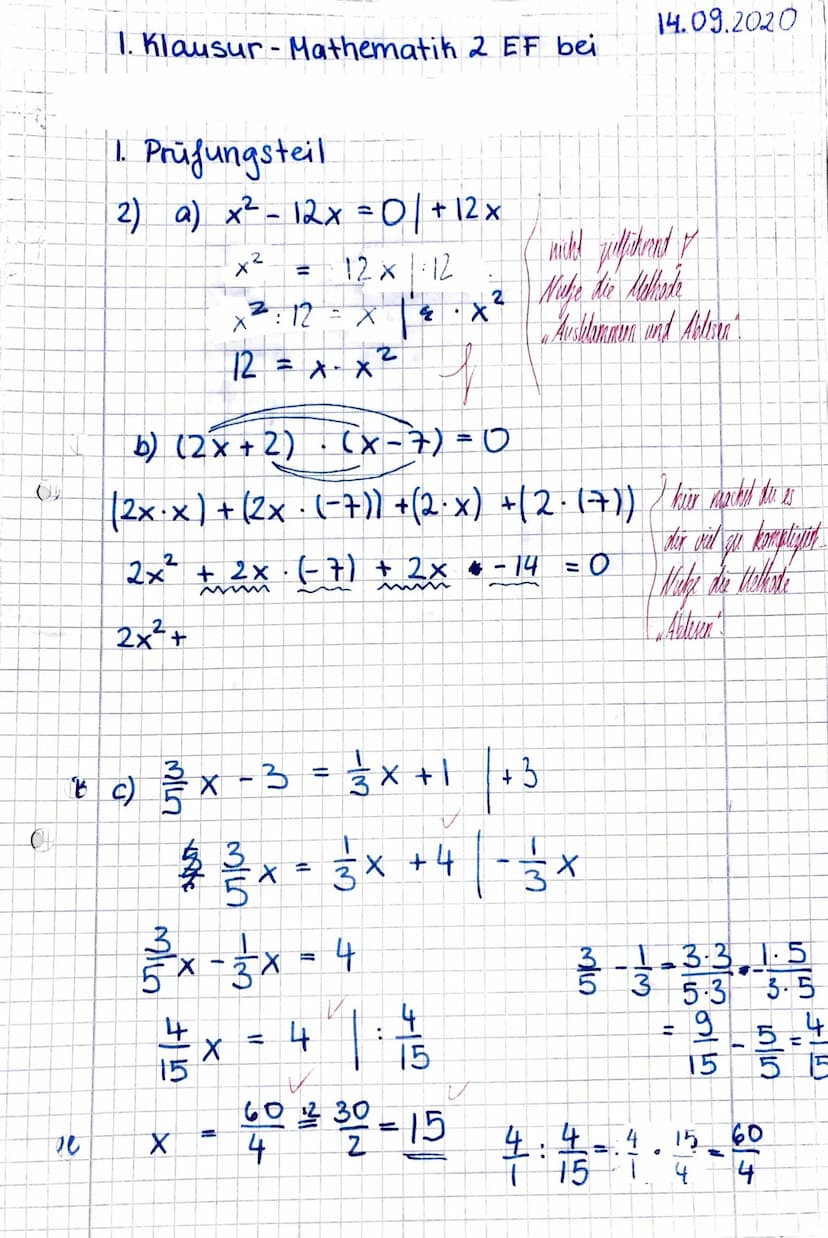 14.09.2020
1. Klausur - Mathematik 2 EF bei
1. Prüfungsteil
2) a) x² - 12x = 0 | + 12x
x² = 12x | : 12
x² : 12 = x | · x²
12 = x · x²
nicht zielführend
Nutze die Methode
„Ausklammern und Ablesen".
b) (2x + 2) · (x - 7) = 0
(2x · x) + (2x · (-7)) + (2 · x) + (2 · (-7))
2x² + 2x · (-7) + 2x - 14 = 0
2x² +
hier machst du es
dir viel zu kompliziert.
Nutze die Methode
„Ablesen".
c) 3/5 x - 3 = 1/3 x + 1 | + 3
3/5 x = 1/3 x + 4 | - 1/3 x
3/5 x - 1/3 x = 4
4/15 x = 4 | : 4/15
x = 60/4 = 30/2 = 15
3/5 - 1/3 = 3·3/5·3 - 1·5/3·5
= 9/15 - 5/5 = 4/15
4/1 : 4/15 = 4/1 · 15/4 = 60/4